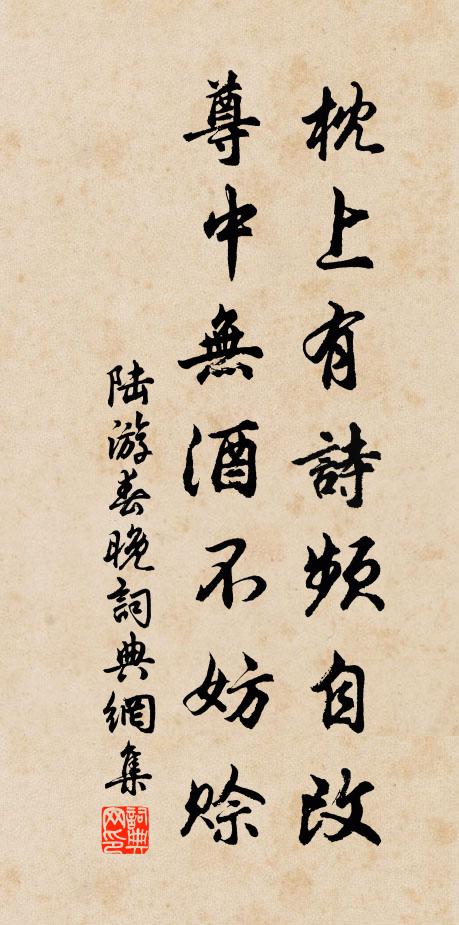 枕上有詩頻自改
尊中無酒不妨賒
陸游春晚詞典網集
詞典网印